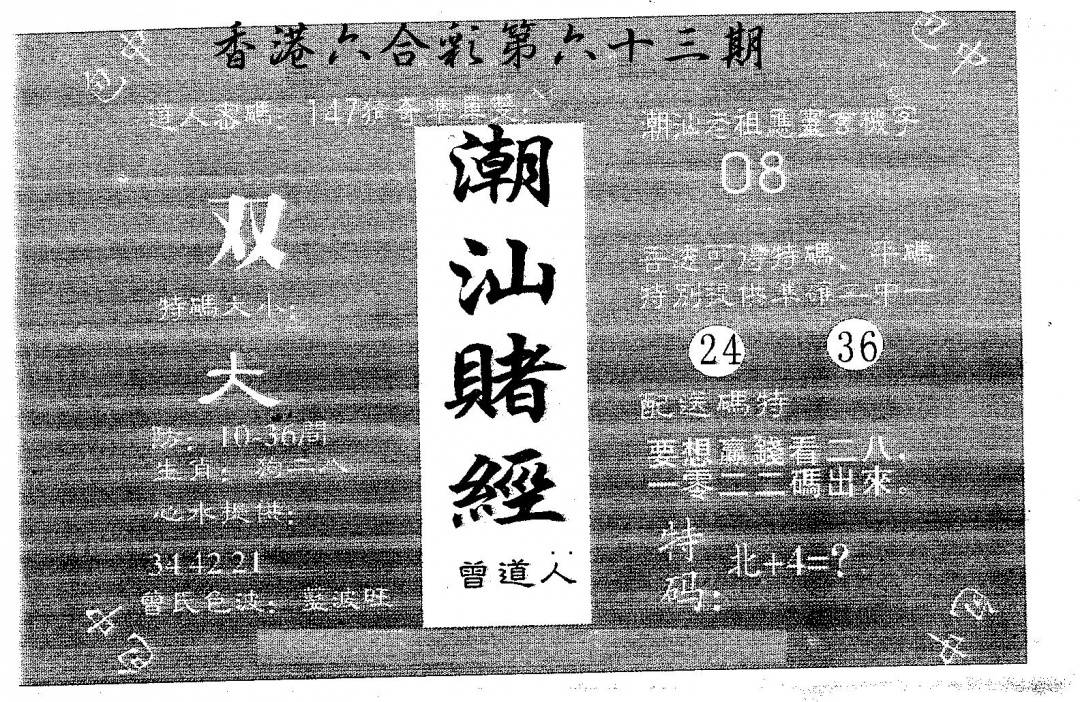 香港六合彩第六十三期
道人密碼：147
双
特碼大小：
大
防：10-36間
生肖：狗二八
心水提供：
34 42 21
曾氏色波：藍波旺
潮
汕
賭
經
曾道人
潮汕老祖應靈會機字
08
吾迷可得特碼、平碼
特别提供準確二中一
24 36
配送碼特
要想贏錢看二八．
一零二二碼出來．
特码：
北+4=?